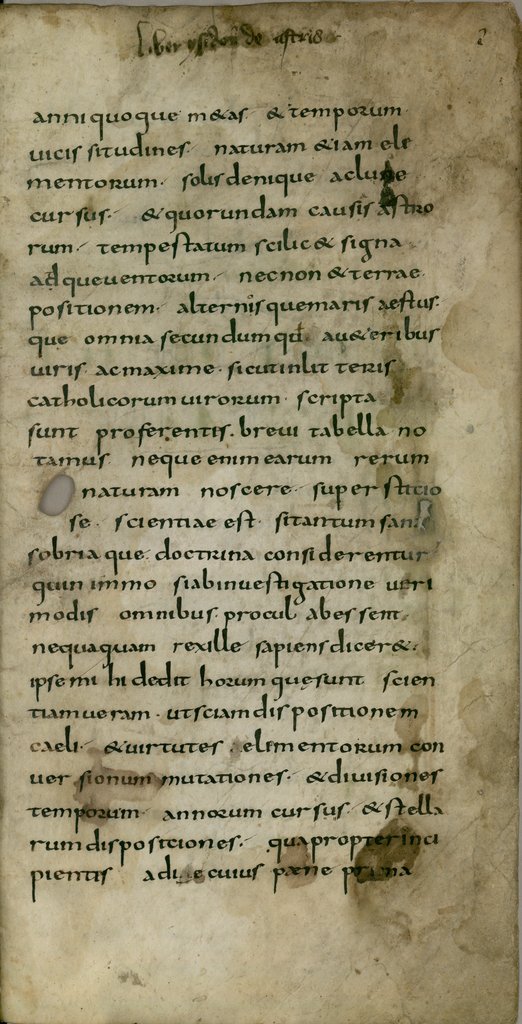 Liber ysidori de astris
2
anni quoque m&as · & temporum
vicissitudines · naturam &iam ele
mentorum · solis denique ac lunae
cursus · & quorundam causis astro
rum · tempestatum scilic& signa
adque ventorum · necnon & terrae
positionem · alternisque maris aestus ·
que omnia secundum qđ au& eribus
viris · ac maxime · sicut in lit teris
catholicorum virorum · scripta
sunt proferentis . brevi tabella no
tamus neque enim earum rerum
naturam noscere superstitio
se · scientiae est · si tantum sana
sobriaque doctrina considerentur
quin immo si ab investigatione veri
modis omnibus procul abessent
nequaquam rex ille sapiens dicer& ·
ipse mihi dedit horum quę sunt scien
tiam veram · ut sciam dispositionem
caeli · & virtutes . elementorum con
versionum mutationes · & divisiones
temporum annorum cursus · & stella
rum dispositiones · quapropter inci
pientis a die cuius paene prima